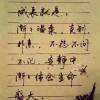 成长就是，
渐渐温柔，克制
朴素，不怨不问
不记，安静中
渐渐体会生命
盛大